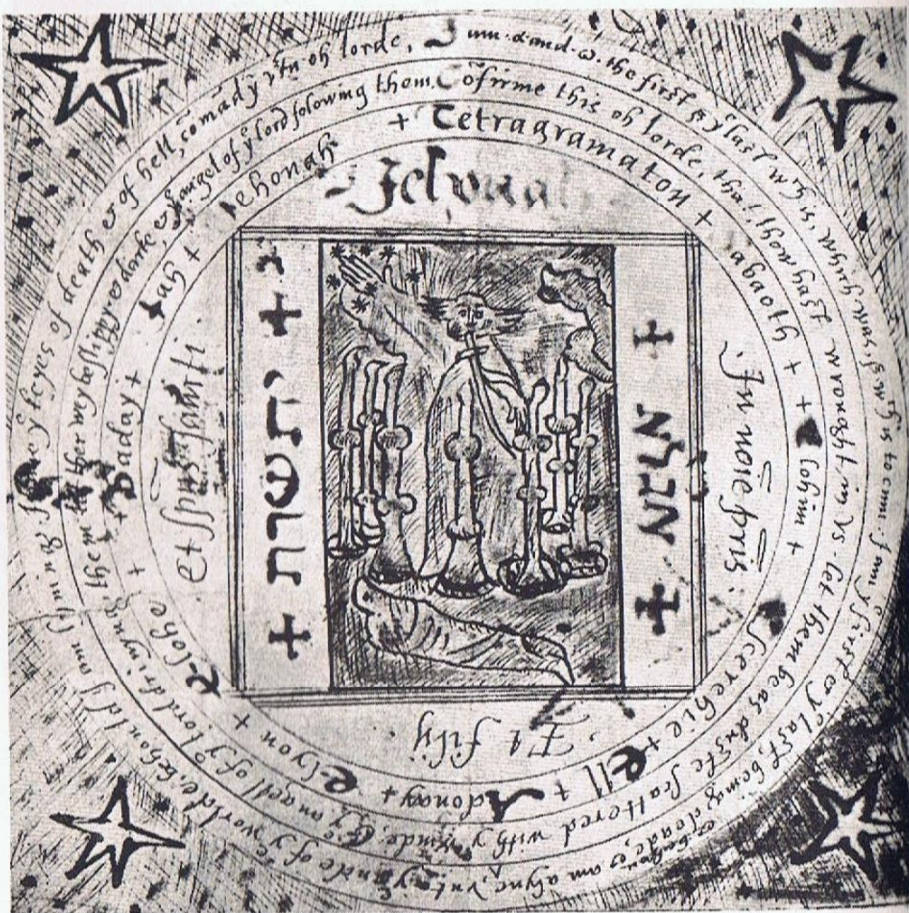 I am .α and .ω. the first & yͤ last wͨʰ is, which was, & wͨʰ is to come. I am yͤ first & yͤ last, being deade, & behold am alyve, vnto yͤ ende of yͤ worlde, behold I am lyving & I have yͤ keyes of death & of hell, oh lorde,
Cōfirme this oh lorde, that thow hast wrought in vs. let them be as duste scattered with yͤ winde, & yͤ angell of yͤ lord dryving them ther way be slippye darke & yͤ angel of yͤ lord folowing them.
+ Tetragramaton + Sabaoth + Elohim + Escerehie + Ell + Adonay + Elyon + Elohe + Saday + Jah + Jehouah
In noīe pris
. Et filij .
et sp̄us sancti .
+ אגלא +